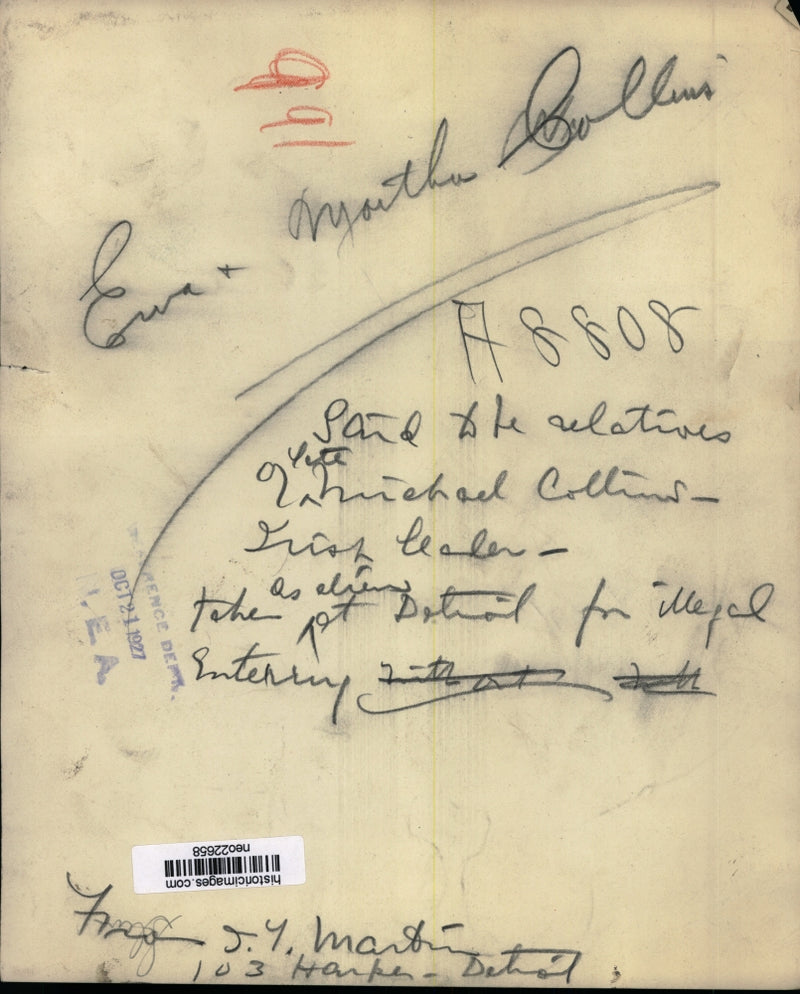 Eva + Martha Collins
A 8808
Said to be relatives
of late Michael Collins -
Irish leader -
taken as aliens at Detroit for illegal
Entering
REFERENCE DEPT.
OCT 21 1927
N. E. A.
historicimages.com
neo22658
From J. Y. Martin
103 Harper - Detroit